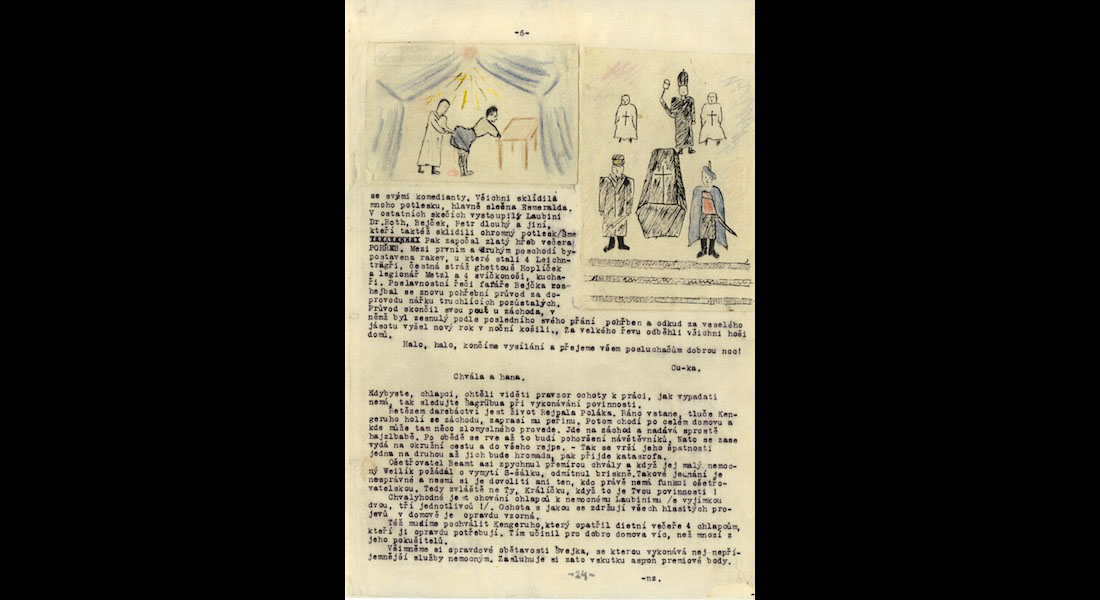 -6-
se svými komedianty. Všichni sklidila
mnoho potlesku, hlavně slečna Esmeralda.
V ostatních skečích vystoupily Laubini
Dr.Roth, Bejček, Petr dlouhý a jiní,
kteří taktéž sklidili ohromný potlesk/šme
Pak započal zlatý hřeb večera
POHŘEB. Mezi prvním a druhým poschodí by-
postavena rakev, u které stáli 4 Leichn-
trägři, čestná stráž ghettouš Hoplíček
a legionář Metzl a 4 svíčkonoši, kucha-
ři. Poslavnostní řeči faráře Bejčka roz-
hejbal se znovu pohřební průvod za do-
provodu nářku truchlících pozůstalých.
Průvod skončil svou pouť u záchoda, v
němž byl zesnulý podle posledního svého přání pohřben a odkud za veselého
jásotu vyšel nový rok v noční košili., Za velkého řevu odběhli všichni hoši
domů.
Halo, halo, končíme vysílání a přejeme všem posluchačům dobrou noc!
Cu-ka.
Chvála a hana.
Kdybyste, chlapci, chtěli viděti pravzor ochoty k práci, jak vypadati
nemá, tak sledujte Šagrübua při vykonávání povinností.
Řetězem darebáctví jest život Rejpala Poláka. Ráno vstane, tluče Ken-
geruho holí se záchodu, zapraší mu peřinu. Potom chodí po celém domovu a
kde může tam něco zlomyslného provede. Jde na záchod a nadává sprostě
hajzlbabě. Po obědě se rve až to budí pohoršení návštěvníků, Nato se zase
vydá na okružní cestu a do všeho rejpe. - Tak se vrší jeho špatnosti
jedna na druhou až jich bude hromada, pak přijde katasrofa.
Ošetřovatel Beamt asi zpychnul přemírou chvály a když jej malý nemoc-
ný Weilík požádal o vymytí S-šálku, odmítnul briskně.Takové jednání je
nesprávné a nesmí si je dovoliti ani ten, kdo právě nemá funkci ošetřo-
vatelskou. Tedy zvláště ne Ty, Králíčku, když to je Tvou povinností !
Chvalyhodné jest chování chlapců k nemocnému Laubinimu /s vyjímkou
dvou, tří jednotlivců !/. Ochota s jakou se zdržují všech hlasitých pro-
jevů v domově je opravdu vzorná.
Též mudíme pochválit Kengeruho,který opatřil dietní večeře 4 chlapcům,
kteří ji opravdu potřebují. Tím učinil pro dobro domova víc, než mnozí z
jeho pokušitelů.
Všimněme si opravdové obětavosti Švejka, se kterou vykonává nej nepří-
jemnější služby nemocným. Zasluhuje si zato vskutku aspoň premiové body.
-24-
-nz.